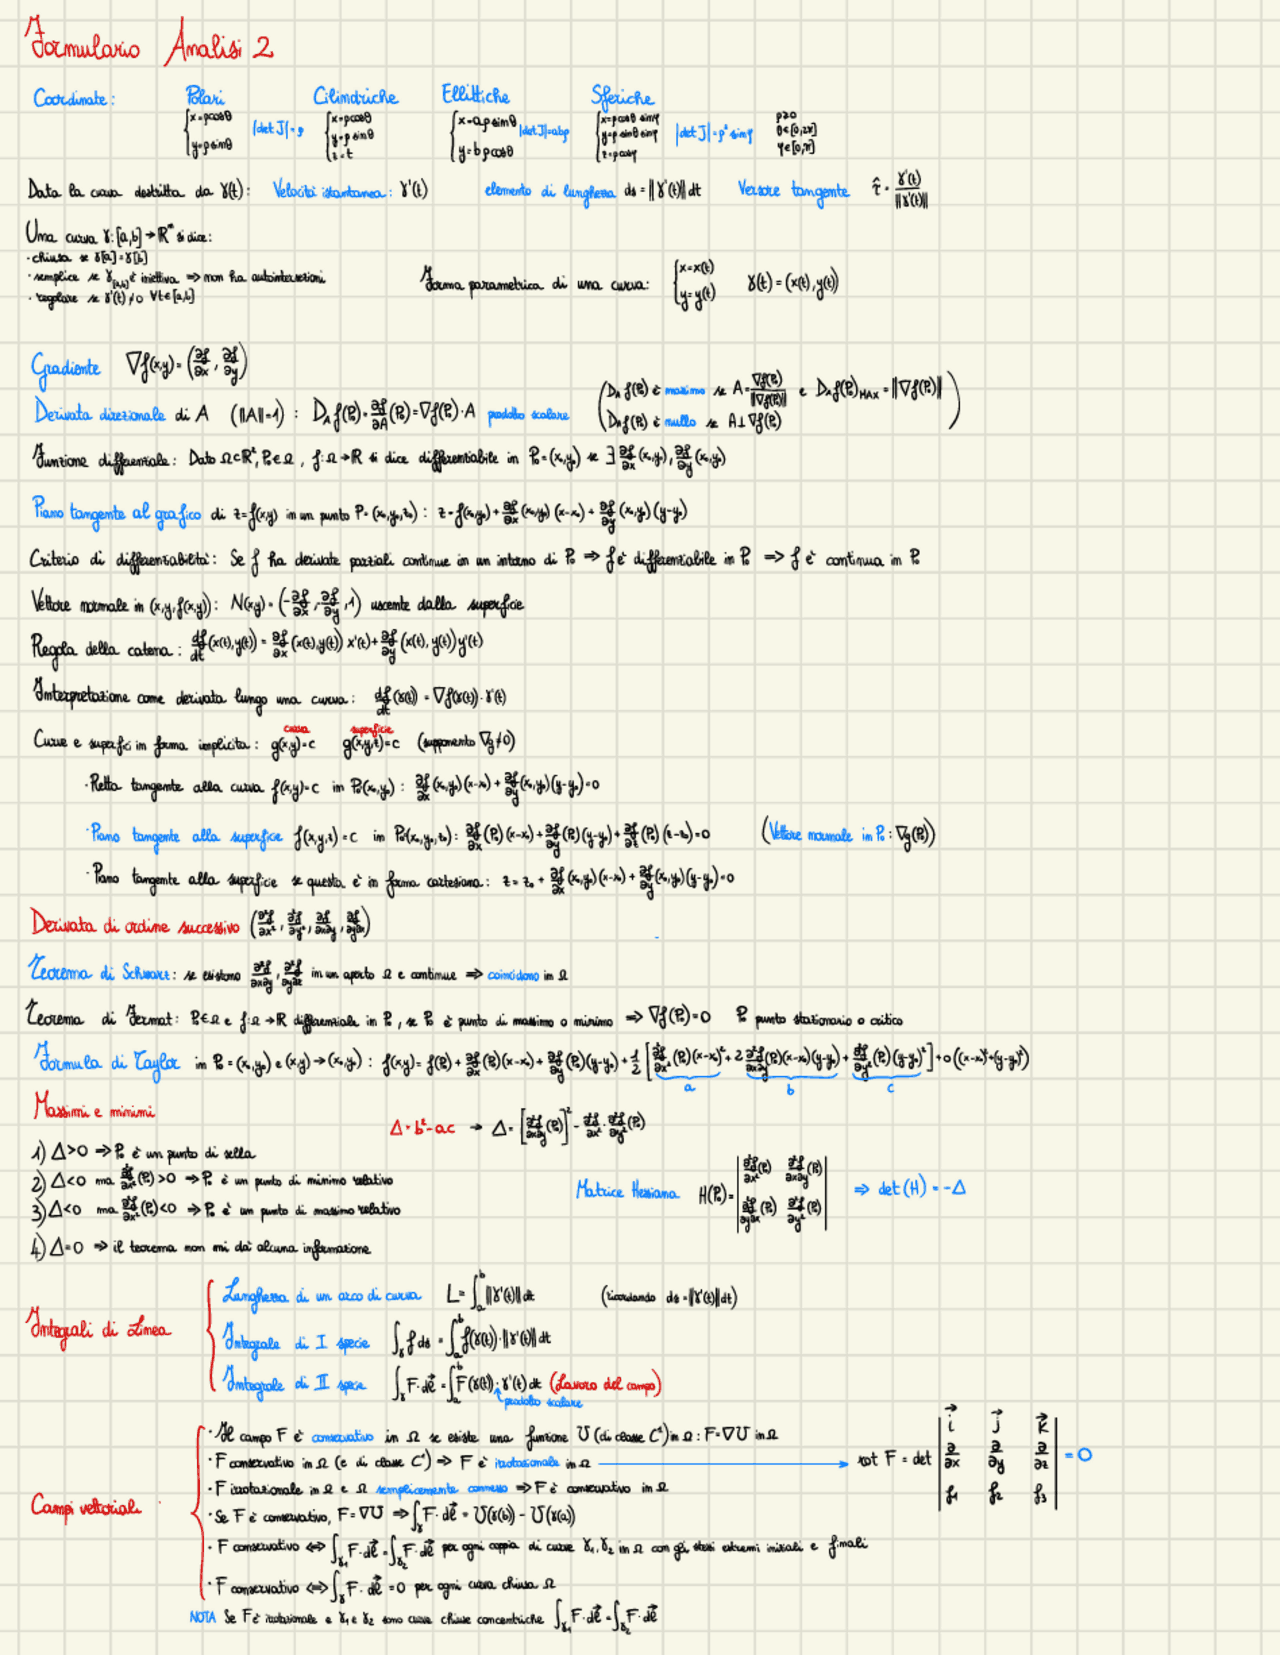 Formulario Analisi 2
Coordinate: Polari Cilindriche Ellittiche Sferiche
{x=ρcosθ y=ρsinθ |det J|=ρ {x=ρcosθ y=ρsinθ z=t {x=aρsinθ y=bρcosθ |det J|=abρ {x=ρcosθ sinφ y=ρsinθ sinφ z=ρcosφ |det J|=ρ² sinφ ρ≥0 θ∈[0,2π] φ∈[0,π]
Data la curva descritta da γ(t): Velocità istantanea: γ'(t) elemento di lunghezza ds=||γ'(t)||dt Versore tangente τ̂ = γ'(t)/||γ'(t)||
Una curva γ:[a,b]→ℝⁿ si dice:
· chiusa se γ[a]=γ[b]
· semplice se γ[a,b) è iniettiva ⇒ non ha autointersezioni
· regolare se γ'(t)≠0 ∀t∈[a,b]
Forma parametrica di una curva: {x=x(t) y=y(t) γ(t)=(x(t),y(t))
Gradiente ∇f(x,y)=(∂f/∂x, ∂f/∂y)
Derivata direzionale di A (||A||=1): D_A f(P₀)=∂f/∂A(P₀)=∇f(P₀)·A prodotto scalare
(D_A f(P₀) è massimo se A=∇f(P₀)/||∇f(P₀)|| e D_A f(P₀)MAX=||∇f(P₀)||
D_A f(P₀) è nullo se A⊥∇f(P₀))
Funzione differenziale: Dato Ω⊂ℝ², P₀∈Ω, f:Ω→ℝ si dice differenziabile in P₀=(x₀,y₀) se ∃ ∂f/∂x(x₀,y₀), ∂f/∂y(x₀,y₀)
Piano tangente al grafico di z=f(x,y) in un punto P=(x₀,y₀,z₀): z=f(x₀,y₀)+∂f/∂x(x₀,y₀)(x-x₀)+∂f/∂y(x₀,y₀)(y-y₀)
Criterio di differenziabilità: Se f ha derivate parziali continue in un intorno di P₀ ⇒ f è differenziabile in P₀ ⇒ f è continua in P₀
Vettore normale in (x,y,f(x,y)): N(x,y)=(-∂f/∂x,-∂f/∂y,1) uscente dalla superficie
Regola della catena: df/dt(x(t),y(t)) = ∂f/∂x(x(t),y(t))x'(t)+∂f/∂y(x(t),y(t))y'(t)
Interpretazione come derivata lungo una curva: df/dt(γ(t)) = ∇f(γ(t))·γ'(t)
curva superficie
Curve e superfici in forma implicita: g(x,y)=c g(x,y,z)=c (supponento ∇g≠0)
·Retta tangente alla curva f(x,y)=c in P₀(x₀,y₀): ∂f/∂x(x₀,y₀)(x-x₀)+∂f/∂y(x₀,y₀)(y-y₀)=0
·Piano tangente alla superficie f(x,y,z)=c in P₀(x₀,y₀,z₀): ∂f/∂x(P₀)(x-x₀)+∂f/∂y(P₀)(y-y₀)+∂f/∂z(P₀)(z-z₀)=0 (Vettore normale in P₀: ∇g(P₀))
·Piano tangente alla superficie se questa è in forma cartesiana: z=z₀+∂f/∂x(x₀,y₀)(x-x₀)+∂f/∂y(x₀,y₀)(y-y₀)=0
Derivata di ordine successivo (∂²f/∂x², ∂²f/∂y², ∂f/∂x∂y, ∂f/∂y∂x)
Teorema di Schwarz: se esistono ∂²f/∂x∂y, ∂²f/∂y∂x in un aperto Ω e continue ⇒ coincidono in Ω
Teorema di Fermat: P₀∈Ω e f:Ω→ℝ differenziale in P₀, se P₀ è punto di massimo o minimo ⇒ ∇f(P₀)=0 P₀ punto stazionario o critico
Formula di Taylor in P₀=(x₀,y₀) e (x,y)→(x₀,y₀): f(x,y)=f(P₀)+∂f/∂x(P₀)(x-x₀)+∂f/∂y(P₀)(y-y₀)+1/2[∂²f/∂x²(P₀)(x-x₀)²+2∂²f/∂x∂y(P₀)(x-x₀)(y-y₀)+∂²f/∂y²(P₀)(y-y₀)²]+o((x-x₀)²+(y-y₀)²)
a b c
Massimi e minimi
Δ=b²-ac → Δ=[∂²f/∂x∂y(P₀)]²-∂²f/∂x²·∂²f/∂y²(P₀)
1) Δ>0 ⇒ P₀ è un punto di sella
2) Δ<0 ma ∂²f/∂x²(P₀)>0 ⇒ P₀ è un punto di minimo relativo
3) Δ<0 ma ∂²f/∂x²(P₀)<0 ⇒ P₀ è un punto di massimo relativo
4) Δ=0 ⇒ il teorema non mi dà alcuna informazione
Matrice Hessiana H(P₀)=|∂²f/∂x²(P₀) ∂²f/∂x∂y(P₀) ∂²f/∂y∂x(P₀) ∂²f/∂y²(P₀)| ⇒ det(H)=-Δ
Integrali di Linea
Lunghezza di un arco di curva L=∫ₐᵇ||γ'(t)||dt (ricordando ds=||γ'(t)||dt)
Integrale di I specie ∫γ f ds = ∫ₐᵇ f(γ(t))·||γ'(t)||dt
Integrale di II specie ∫γ F·dℓ⃗ = ∫ₐᵇ F(γ(t))·γ'(t)dt (Lavoro del campo)
prodotto scalare
Campi vettoriali
· Il campo F è conservativo in Ω se esiste una funzione U (di classe C¹) in Ω: F=∇U in Ω
· F conservativo in Ω (e di classe C¹) ⇒ F è irrotazionale in Ω → rot F = det |i⃗ j⃗ k⃗ ∂/∂x ∂/∂y ∂/∂z f₁ f₂ f₃| = 0
· F irrotazionale in Ω e Ω semplicemente connesso ⇒ F è conservativo in Ω
· Se F è conservativo, F=∇U ⇒ ∫γ F·dℓ⃗ = U(γ(b))-U(γ(a))
· F conservativo ⇔ ∫γ₁ F·dℓ⃗ = ∫γ₂ F·dℓ⃗ per ogni coppia di curve γ₁,γ₂ in Ω con gli stessi estremi iniziali e finali
· F conservativo ⇔ ∫γ F·dℓ⃗ =0 per ogni curva chiusa Ω
NOTA Se F è irrotazionale e γ₁ e γ₂ sono curve chiuse concentriche ∫γ₁ F·dℓ⃗ = ∫γ₂ F·dℓ⃗